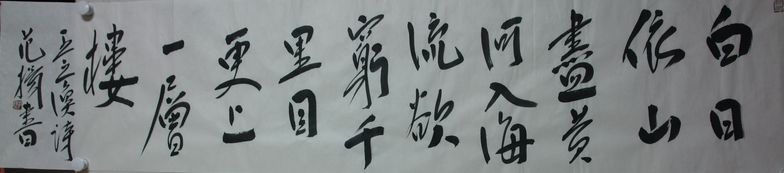 白日
依山
盡黄
河入海
流欲
窮千
里目
更上
一層
樓
王之渙詩
范揚書